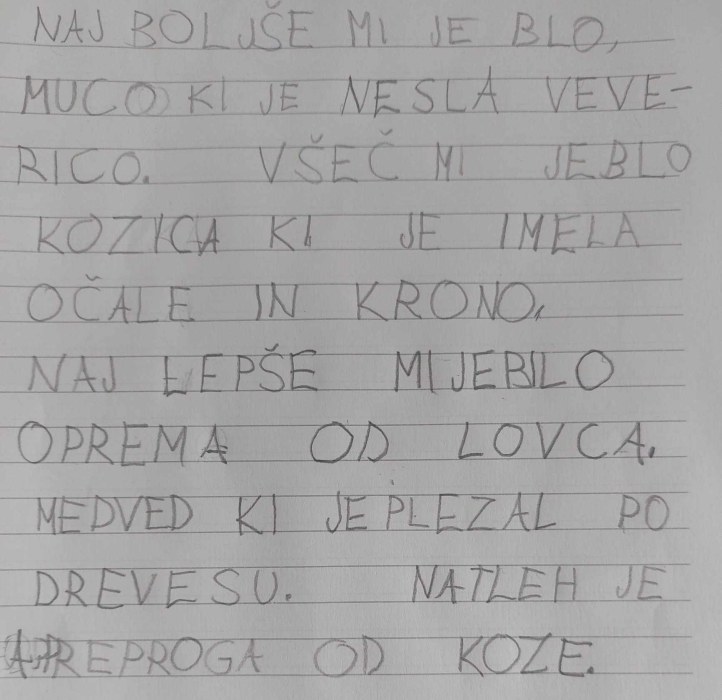 NAJ BOLJŠE MI JE BLO,
MUCO KI JE NESLA VEVE-
RICO. VŠEČ MI JEBLO
KOZICA KI JE IMELA
OČALE IN KRONO,
NAJ LEPŠE MIJEBILO
OPREMA OD LOVCA.
MEDVED KI JE PLEZAL PO
DREVESU. NATLEH JE
PREPROGA OD KOZE.